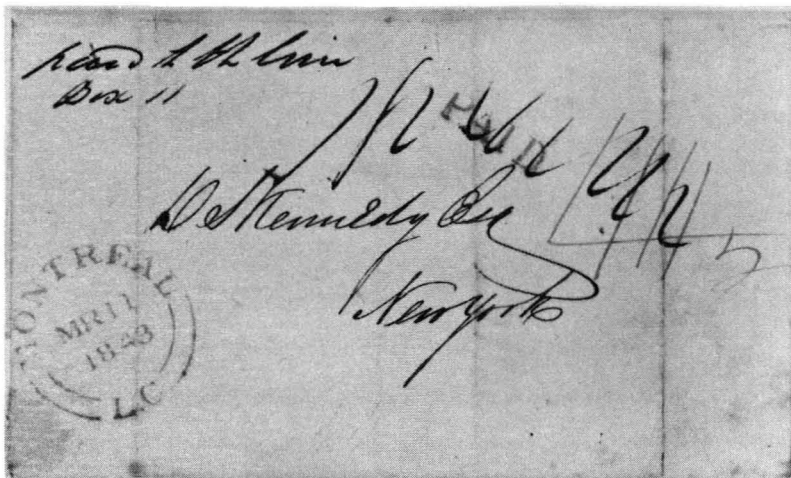 paid to the line
Box 11
PAID
D S Kennedy Esq
New York
MONTREAL
MR 11
1843
L.C